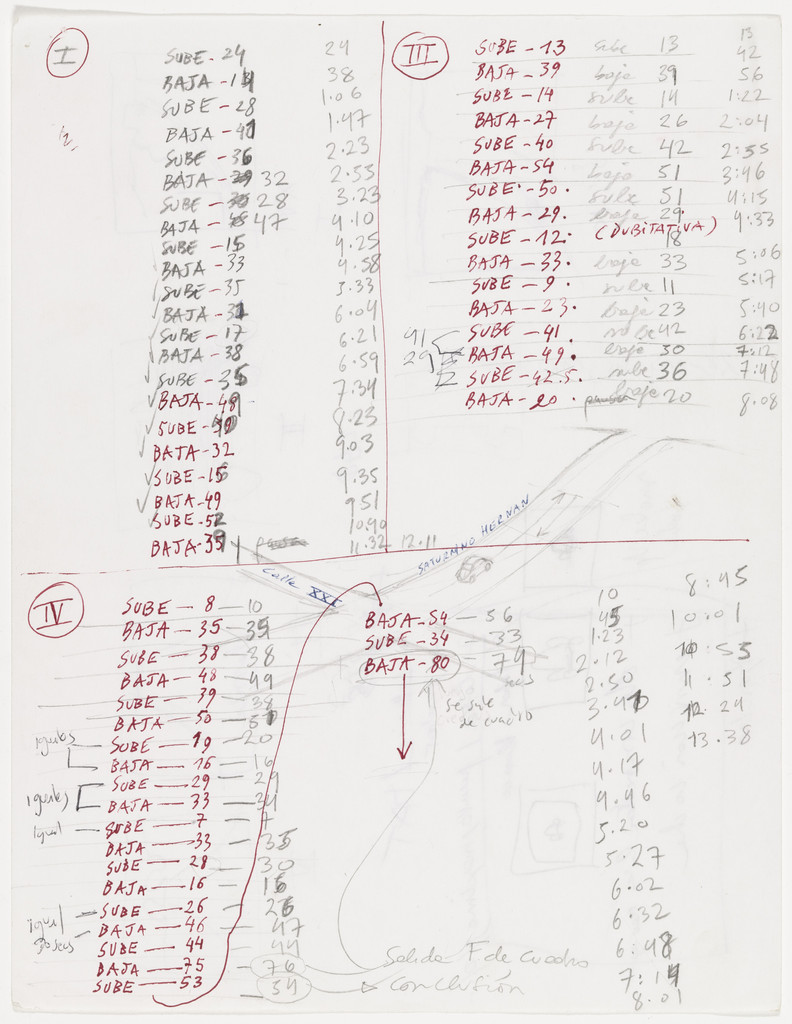 I
SUBE - 24 24
BAJA - 14 38
SUBE - 28 1.06
BAJA - 41 1.47
SUBE - 36 2.23
BAJA - 32 2.55
SUBE - 28 3.23
BAJA - 47 4.10
SUBE - 15 4.25
BAJA - 33 4.58
SUBE - 35 5.33
BAJA - 31 6.04
SUBE - 17 6.21
BAJA - 38 6.59
SUBE - 35 7.34
BAJA - 49 8.23
SUBE - 40 9.03
BAJA - 32
SUBE - 15 9.35
BAJA - 49 9.51
SUBE - 52 10.40
BAJA - 39 y 11.32 12.11
III
13
SUBE - 13 sube 13 42
BAJA - 39 baja 39 56
SUBE - 14 sube 14 1:22
BAJA - 27 baja 26 2:04
SUBE - 40 sube 42 2:55
BAJA - 54 baja 51 3:46
SUBE - 50. sube 51 4:15
BAJA - 29. baja 29. 4:33
SUBE - 12. (DUBITATIVA) 18
BAJA - 33. baja 33 5:06
SUBE - 9. sube 11 5:17
BAJA - 23. baja 23 5:40
41 SUBE - 41. sube 42 6:22
29 BAJA - 49. baja 30 7:12
SUBE - 42.5. sube 36 7:48
BAJA - 20. baja 20 8.08
Calle XXI
SATURNINO HERNAN
IV
SUBE — 8 — 10
BAJA — 35 — 35
SUBE — 38 — 38
BAJA — 48 — 49
SUBE — 39 — 38
BAJA — 50 — 51
iguales SUBE — 19 — 20
BAJA — 16 — 16
iguales SUBE — 29 — 29
BAJA — 33 — 34
Igual — SUBE — 7 — 7
BAJA — 33 — 35
SUBE — 28 — 30
BAJA — 16 — 16
Igual SUBE — 26 — 26
BAJA — 46 — 47
SUBE — 44 — 44
BAJA — 75 — 76
SUBE — 53 — 54
BAJA - 54 — 56
SUBE - 34 — 33
BAJA - 80 — 79
se sale
de cuadro
Salida F de cuadro
Conclusión
10
45
1.23
2.12
2.50
3.41
4.01
4.17
4.46
5.20
5.27
6.02
6.32
6:48
7:14
8.01
8:45
10:01
10:55
11.51
12.24
13.38